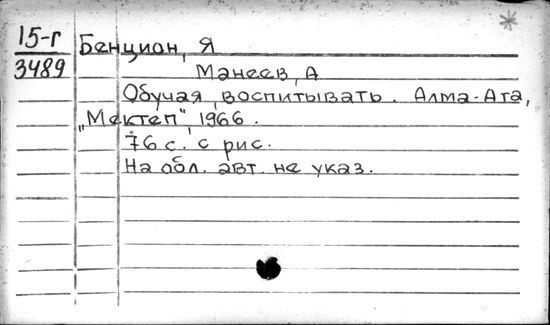 15-г
3489
Бенцион, Я
Манеев, А
Обучая, воспитывать. Алма-Ата,
„Мектеп", 1966.
76 с. с рис.
На обл. авт. не указ.